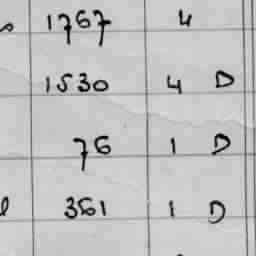 1767 4
1530 4 D
76 1 D
361 1 D